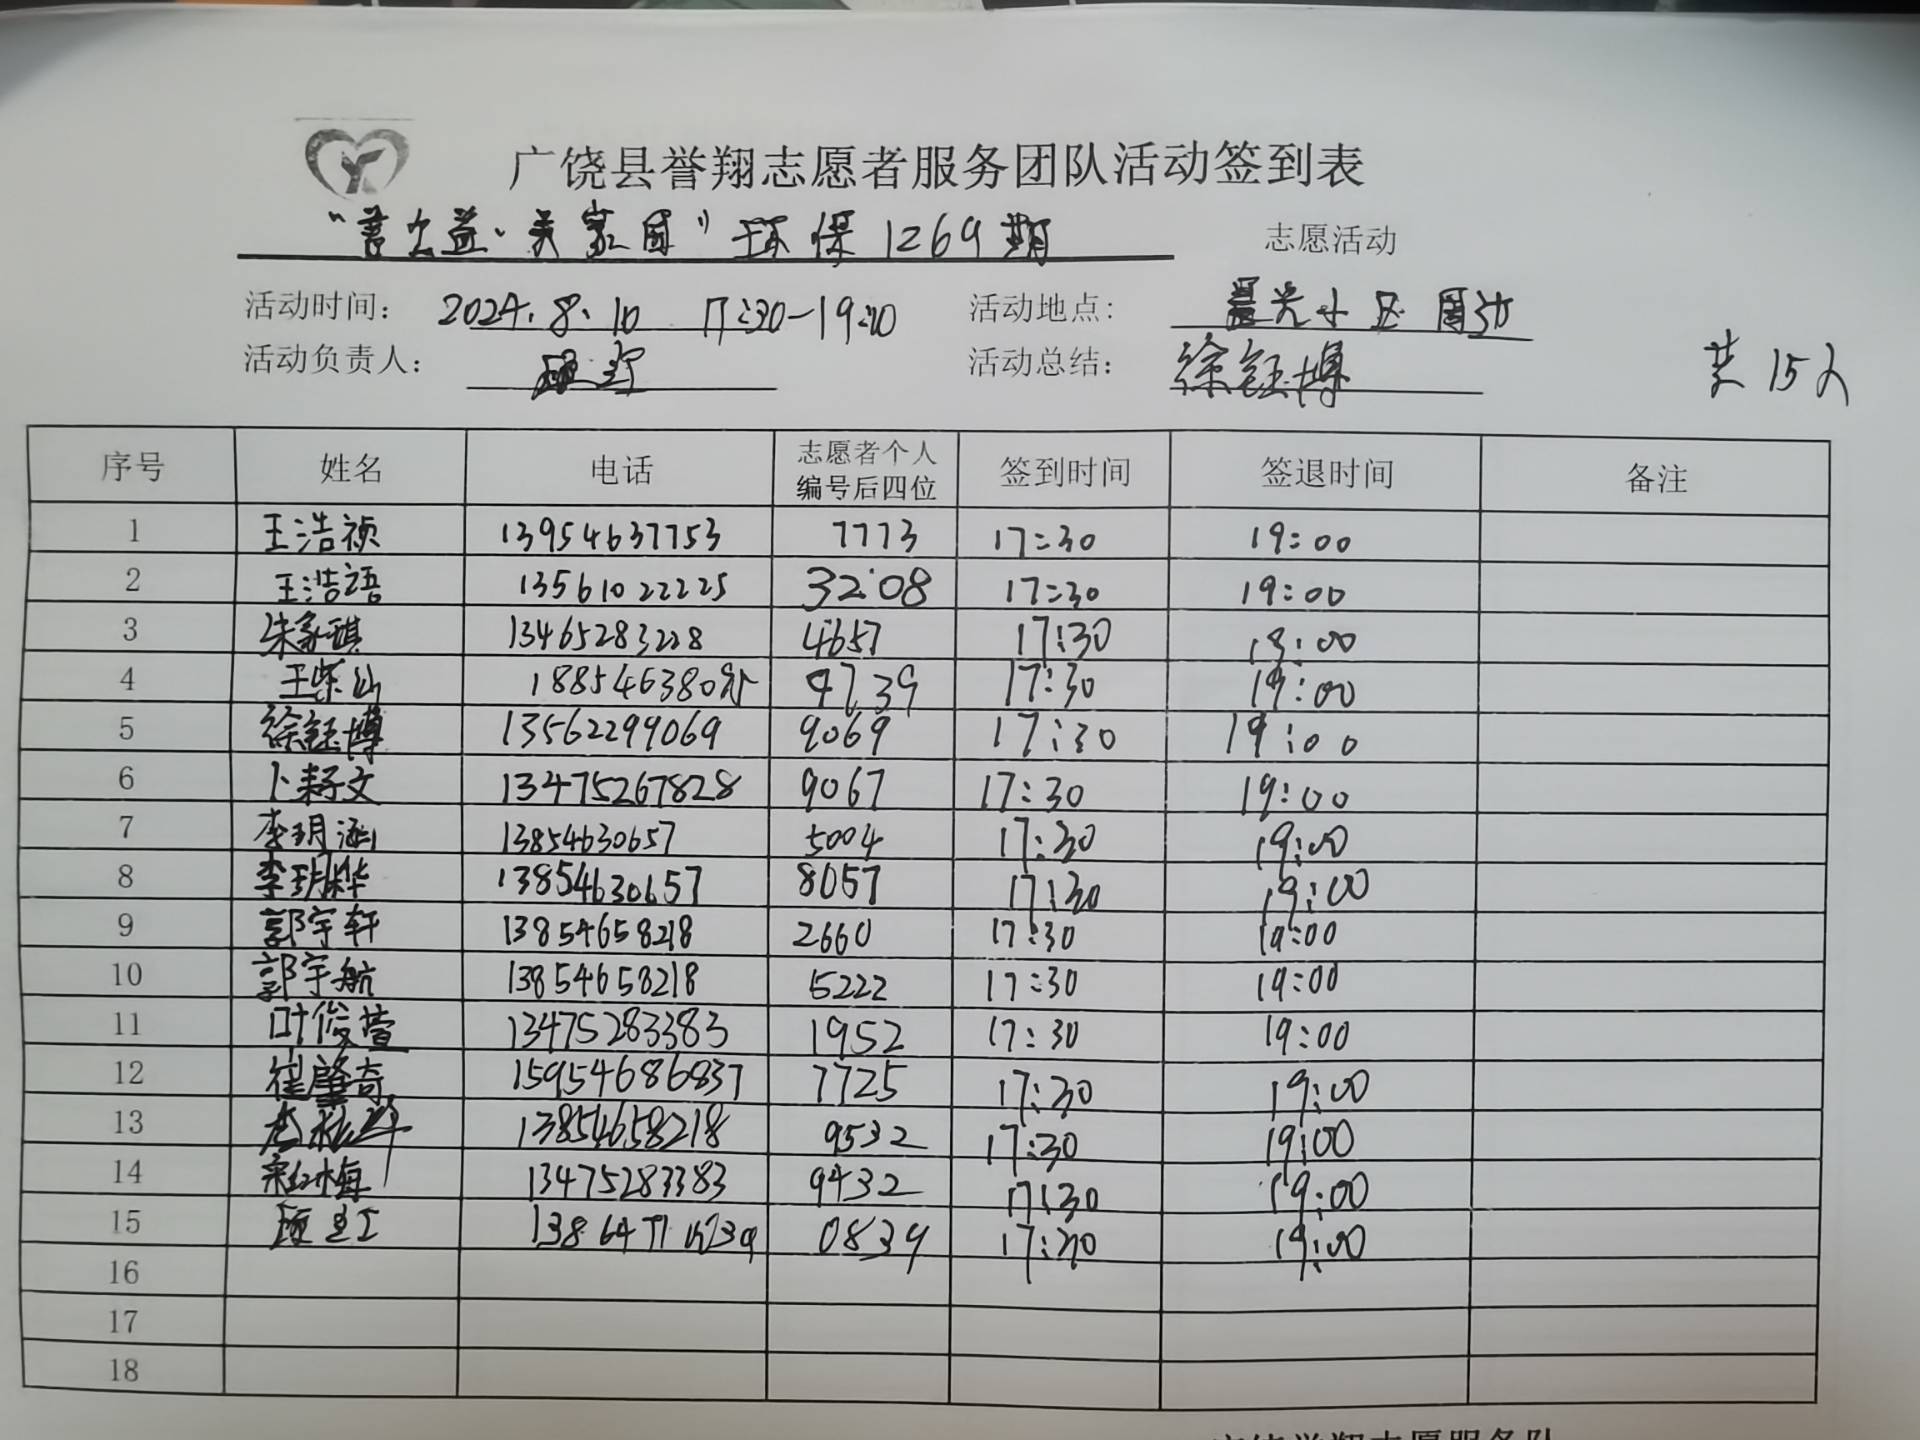 广饶县誉翔志愿者服务团队活动签到表
"善公益·美家园"环保1269期 志愿活动
活动时间： 2024.8.10 17:30-19:00 活动地点： 晨光小区周边
活动负责人： 活动总结： 徐钰博 共15人
序号 姓名 电话 志愿者个人编号后四位 签到时间 签退时间 备注
1 王浩祯 13954637753 7773 17:30 19:00
2 王浩语 13561022225 3208 17:30 19:00
3 朱家琪 13465283228 4657 17:30 19:00
4 王紫仙 188546380 9739 17:30 19:00
5 徐钰博 13562299069 9069 17:30 19:00
6 卜耔文 13475267828 9067 17:30 19:00
7 李玥涵 13854630657 5004 17:30 19:00
8 李玥桦 13854630657 8057 17:30 19:00
9 郭宇轩 13854658218 2660 17:30 19:00
10 郭宇航 13854658218 5222 17:30 19:00
11 叶俊萱 13475283383 1952 17:30 19:00
12 崔肇奇 15954686837 7725 17:30 19:00
13 13854658218 9532 17:30 19:00
14 宋红梅 13475283383 9432 17:30 19:00
15 0839 17:30 19:00
16
17
18